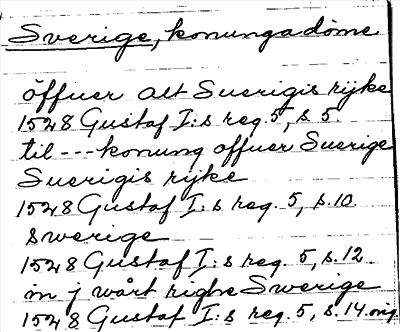 Sverige, konungadöme
öffuer alt Suerigis rijke
1528 Gustaf I:s reg. 5, s. 5.
til --- konung offuer Suerige
Suerigis rijke
1528 Gustaf I:s reg. 5, s. 10.
Swerige
1528 Gustaf I:s reg. 5, s. 12
in j wårt righe Swerige
1528 Gustaf I:s reg. 5, s. 14. orig.